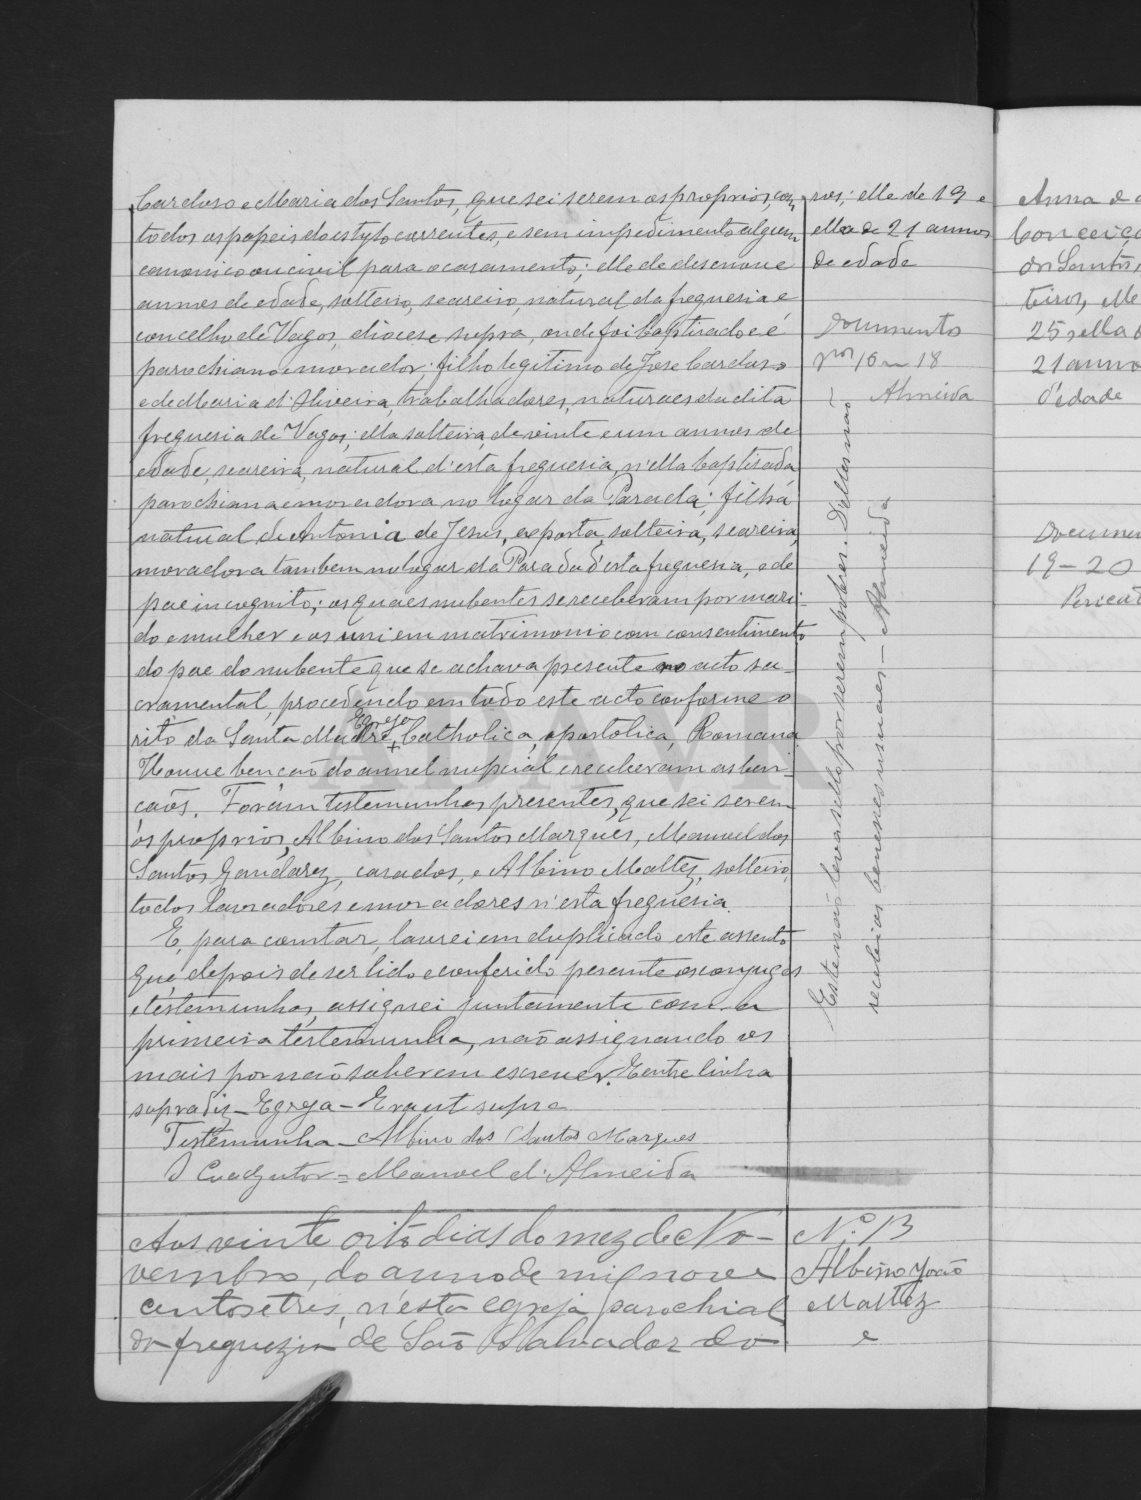 Cardoso e Maria dos Santos, que sei serem os proprios, com
todos os papeis do estylo correntes, e sem impedimento algum
canonico ou civil para o casamento; elle de desenove
annos de edade, solteiro, seareiro, natural da freguesia e
concelho de Vagos, diocese supra, onde foi baptisado e é
parochiano e morador: filho legitimo de Jose Cardoso
e de Maria d'Oliveira, trabalhadores, naturaes da dita
freguesia de Vagos; ella solteira, de vinte e um annos de
edade, seareira, natural d'esta freguesia, n'ella baptisada
parochiana e moradora no logar da Parada; filha
natural de Antonia de Jesus, exposta, solteira, seareira,
moradora tambem no logar da Parada d'esta freguesia, e de
pae incognito; os quaes nubentes se receberam por mari-
do e mulher e os uni em matrimonio com consentimento
do pae do nubente que se achava presente no acto sa-
cramental, procedendo em todo este acto conforme o
rito da Santa Madre Egreja Catholica, apostolica, Romana
Houve benção do annel nupcial e receberam as ben-
çãos. Foram testemunhas presentes, que sei serem
os proprios, Albino dos Santos Marques, Manuel dos
Santos Gandarez, casados, e Albino Maltez, solteiro,
todos lavradores e moradores n'esta freguesia.
E, para constar, lavrei em duplicado este assento
que, depois de ser lido e conferido perante os conjuges
e testemunhas, assignei juntamente com a
primeira testemunha, não assignando os
mais por não saberem escrever. E entre linha
supra diz - Egreja - Era ut supra
Testemunha - Albino dos Santos Marques
O Coadjutor = Manoel d'Almeida
Aos vinte oito dias do mez de No-
vembro, do anno de mil nove
centos e tres, n'esta egreja parochial
da freguezia de São Salvador do
ros; elle de 19 e
ella de 21 annos
de edade
Documento
Nos 16 a 18
Almeida
Este não leva sello por serem pobres. D'elles não
recebi os benesses usuaes - Almeida
Nº 13
Albino João
Maltez
e
Anna
Conceição
25 ella
21 anno
d'edade
19-20